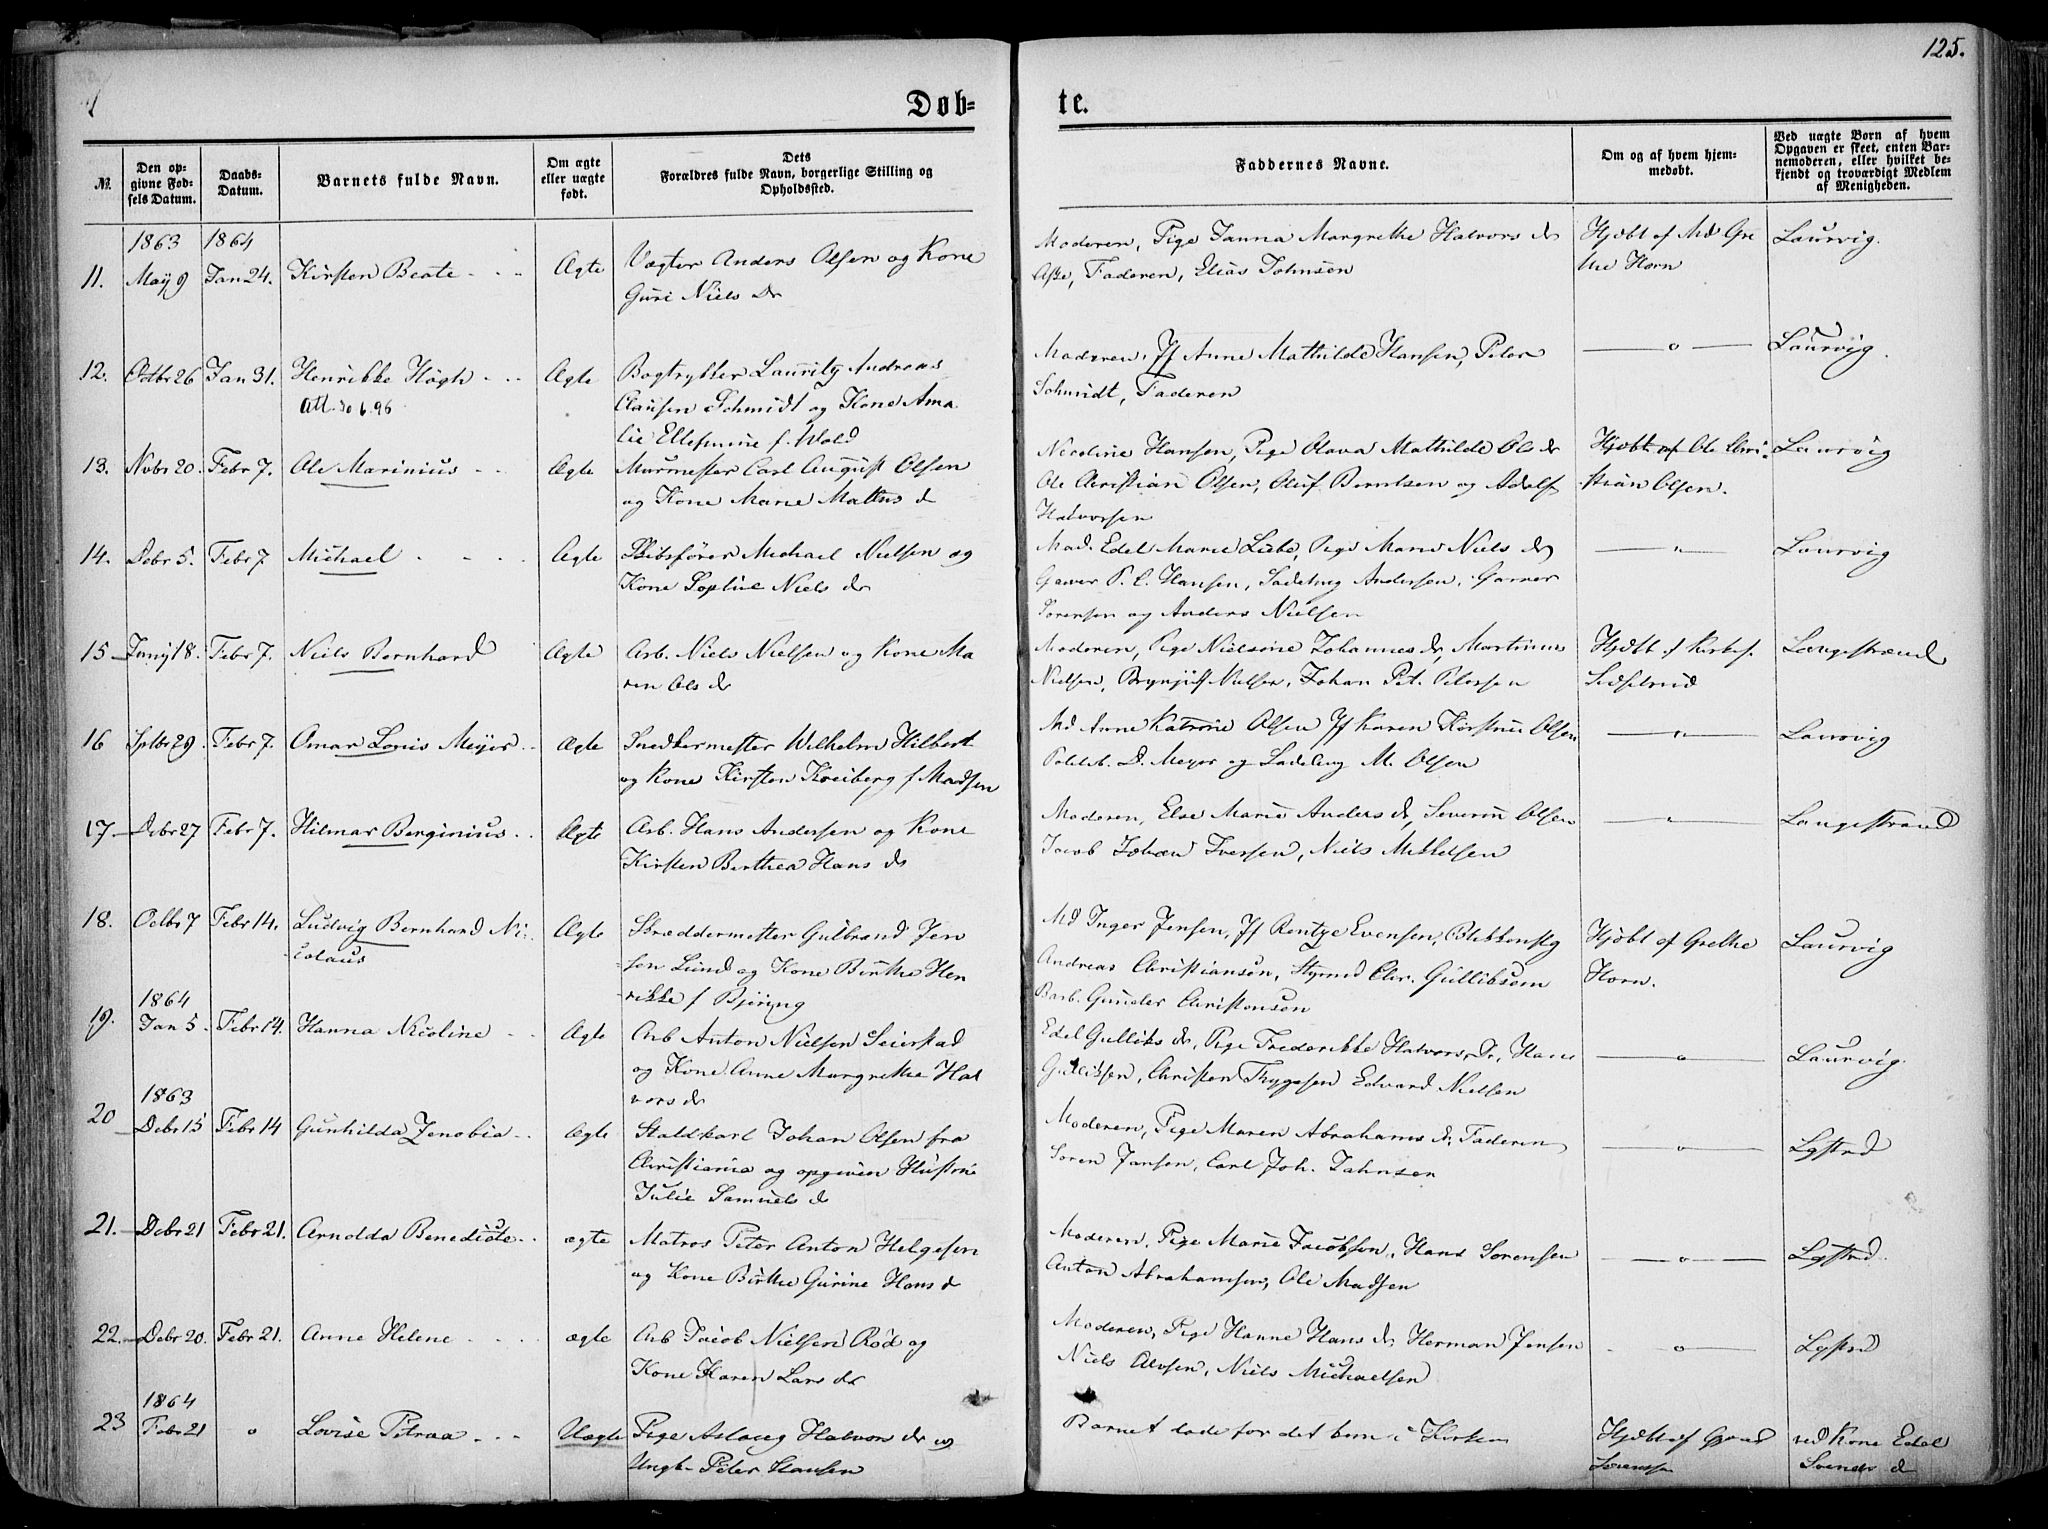 125.
Døb-
te.
№.
Den op-
givne Fød-
sels Datum.
Daabs-
Datum.
Barnets fulde Navn.
Om ægte
eller uægte
født.
Dets
Forældres fulde Navn, borgerlige Stilling og
Opholdssted.
Faddernes Navne.
Om og af hvem hjem-
medøbt.
Ved uægte Børn af hvem
Opgaven er skeet, enten Bar-
nemoderen, eller hvilket be-
kjendt og troværdigt Medlem
af Menigheden.
1863 1864
11. May 9 Jan 24. Kirsten Beate Ægte Vægter Anders Olsen og Kone
Guri Niels Dr
Moderen, Pige Janna Margrethe Halvors dr
Aske, Faderen, Elias Johnsen
Hjdbt af Md Gre
the Horn
Laurvig.
12. Octbr 26 Jan 31. Henrikke Høgh Ægte Bogtrykker Lauritz Andreas
Att. 30 6. 96
Clausen Schmidt og Kone Ama
lie Ellefmine f. Wold
Moderen, Jf Anne Mathilde Hansen, Peter
Schmidt, Faderen
— " —
Laurvig.
13. Novbr 20. Febr 7. Ole Marinius Ægte Murmester Carl August Olsen
og Kone Marie Mattis d
Nicoline Hansen, Pige Olava Mathilde Ols dr
Ole Christian Olsen, Oluf Berntsen og Adolf
Halvorsen
Hjdbt af Ole Chri-
stian Olsen.
Laurvig
14. Debr 5. Febr 7 Michael Ægte Skibsfører Michael Nielsen og
Kone Sophie Niels dr
Mad. Edel Marie Liebe, Pige Maren Niels dr
Gaver P. C. Hansen, Sadelmg Andersen, Garver
Sørensen og Anders Nielsen
— " —
Laurvig
15 Juny 18. Febr 7. Niels Bernhard Ægte Arb. Niels Nielsen og Kone Ma
ren Ols dr
Moderen, Pige Nielsine Johannes dr, Martinus
Nielsen, Brynjulf Nielsen, Johan Pet. Petersen
Hjdbt af Kirkes.
Sidselrud
Langestrand
16 Sptbr 29. Febr 7. Omar Louis Meyer Ægte Snedkermester Wilhelm Hilbert
og Kone Kirsten Kreiberg f Madsen
Md Anne Katrine Olsen Jf Karen Kirstine Olsen
Politbt. D. Meyer og Sadelmg M. Olsen
— " —
Laurvig
17. Debr 27 Febr 7. Hilmar Berginius Ægte Arb. Hans Andersen og Kone
Kirsten Berthea Hans dr
Moderen, Else Marie Anders dr, Severin Olsen
Jacob Johan Iversen, Niels Mikkelsen
— " —
Langestrand
18. Octbr 7 Febr 14. Ludvig Bernhard Ni-
colaus
Ægte Skræddermester Gulbrand Jen
sen Lund og Kone Birthe Hen
rikke f Bjering
Md Inger Jensen, Jf Rentze Evensen, Blikkenslg
Andreas Christiansen, Styrmd Chr. Gullibsen
Barb. Gunder Christensen
Hjdbt af Grethe
Horn.
Laurvig
1864
19. Jan 5. Febr 14. Hanna Nicoline Ægte Arb Anton Nielsen Seierstad
og Kone Anne Margrethe Hal
vors dr
Edel Gulliks dr, Pige Frederikke Halvors Dr, Hans
Gulliksen, Christen Thygesen Edvard Nielsen
— " —
Laurvig.
1863
20 Debr 15 Febr 14 Gunhilda Zenobia Ægte Staldkarl Johan Olsen fra
Christiania og opgiven Hustru
Julie Samuels dr
Moderen, Pige Maren Abrahams dr, Faderen
Soren Jansen, Carl Joh. Jahnsen
— " —
Lgstrd
21. Debr 21 Febr 21. Arnolda Benedicte ægte Matros Peter Anton Helgesen
og Kone Birthe Gurine Hans d
Moderen, Pige Marie Jacobsen, Hans Sorensen
Anton Abrahamsen, Ole Madsen
— " —
Lgstrd.
22. Debr 20. Febr 21. Anne Helene ægte Arb Jacob Nielsen Rød og
Kone Karen Lars dr
Moderen, Pige Hanne Hans dr, Herman Jensen
Niels Alvsen, Niels Michaelsen
— " —
Lgstrd
1864
23 Febr 21 " Lovise Petrea Uægte Pige Aslaug Halvors dr og
Ungk. Peter Hansen
Barnet døde før det kom i Kirken
Hjdbt af
Sorensen
ved Kone Edel
Svends d